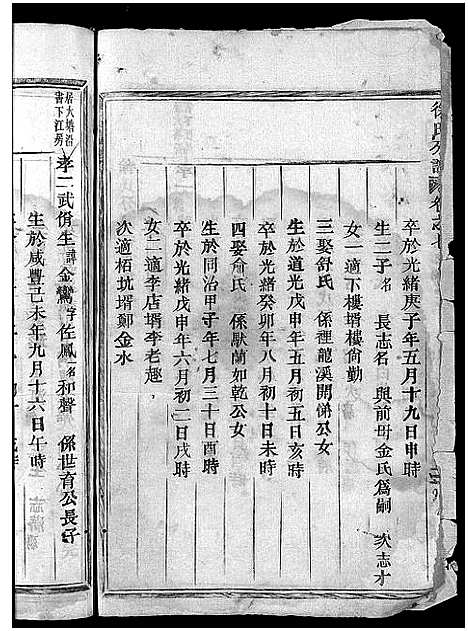 徐氏宗譜 卷之七
卒於光緒庚子年五月十九日申時
生二子名 長志名 與前母金氏爲嗣 次志才
女一適下樓壻樓尙勤
三娶舒氏 係裡龍溪開悌公女
生於道光戊申年五月初五日亥時
卒於光緒癸卯年八月初十日未時
四娶俞氏 係厭蘭如乾公女
生於同治甲子年七月三十日酉時
卒於光緒戊申年六月初二日戌時
女二適李店壻李老趣
次適栢坑壻鄭金水
居大塘沿
書下江房
孝二武俏生諱金鸞字佐鳳名和聲 係世育公長子
生於咸豐己未年九月十六日午時